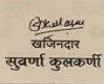 खजिनदार
सुवर्णा कुलकर्णी